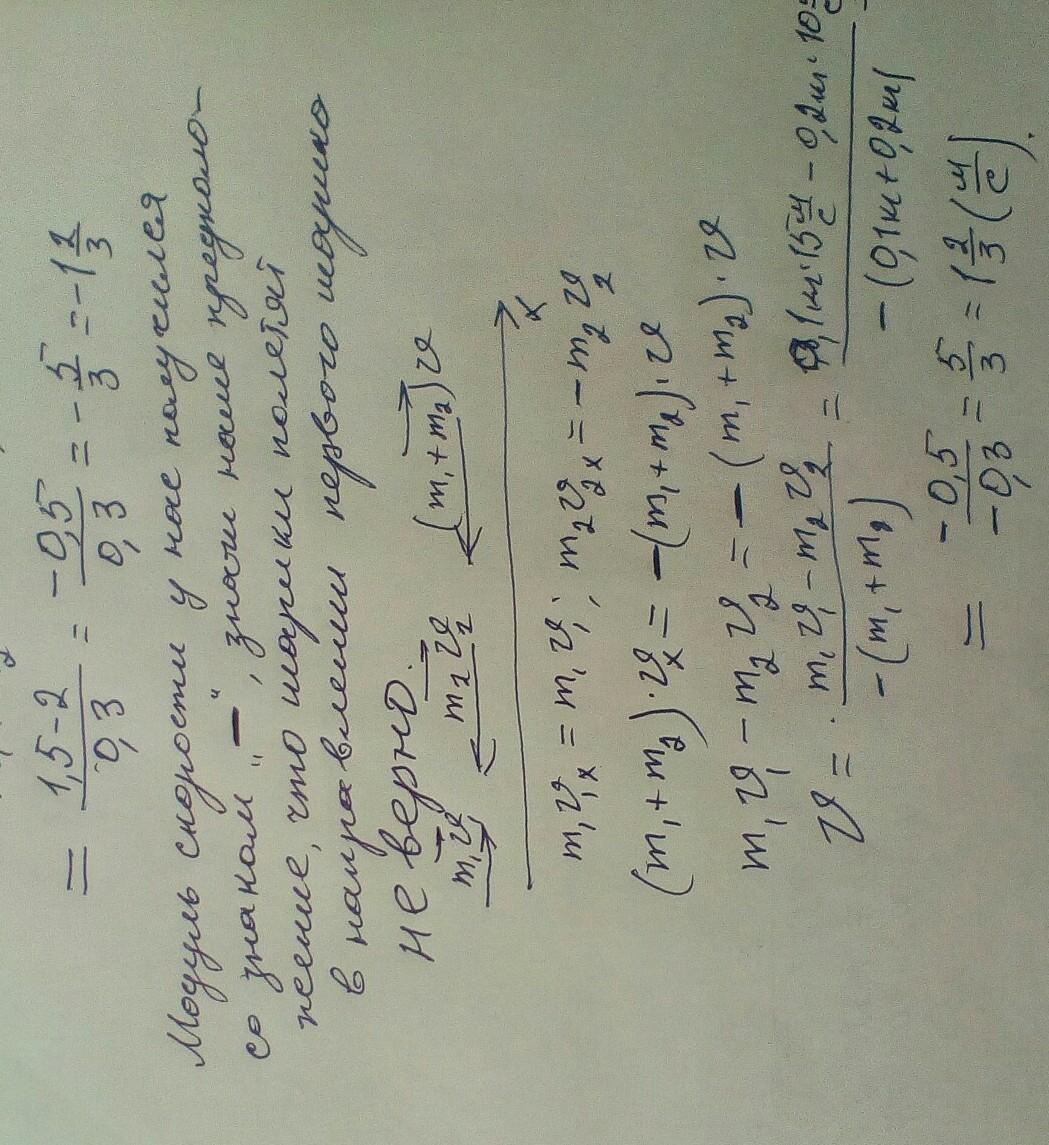 = \frac{1,5-2}{0,3} = \frac{-0,5}{0,3} = -\frac{5}{3} = -1\frac{2}{3}
Модуль скорости у нас получился
со знаком "–", значит наше предполо-
жение, что шарики полетят
в направлении первого шарика
не верно.
\vec{m_1v_1} \vec{m_2v_2} \vec{(m_1+m_2)v}
x
m_1v_{1x} = m_1v_1; m_2v_{2x} = -m_2v_2
(m_1+m_2)·v_x = -(m_1+m_2)·v
m_1v_1 - m_2v_2 = -(m_1+m_2)·v
v = \frac{m_1v_1 - m_2v_2}{-(m_1+m_2)} = \frac{0,1кг·15\frac{м}{с} - 0,2кг·10\frac{м}{с}}{-(0,1кг+0,2кг)}
= \frac{-0,5}{-0,3} = \frac{5}{3} = 1\frac{2}{3}(\frac{м}{с}).